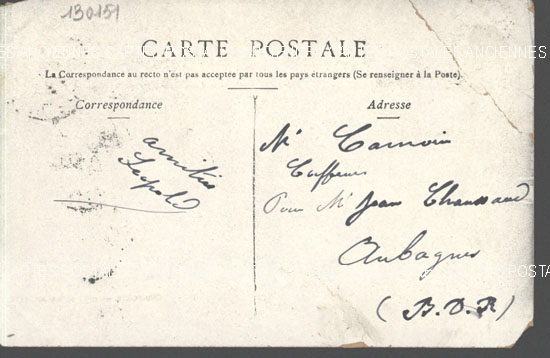 130151
CARTE POSTALE
La Correspondance au recto n'est pas acceptée par tous les pays étrangers (Se renseigner à la Poste).
Correspondance
Adresse
amitiés
Léopold
Mr Camoin
Coiffeur
Pour Mr Jean Chaussaud
Aubagne
(B.D.R)